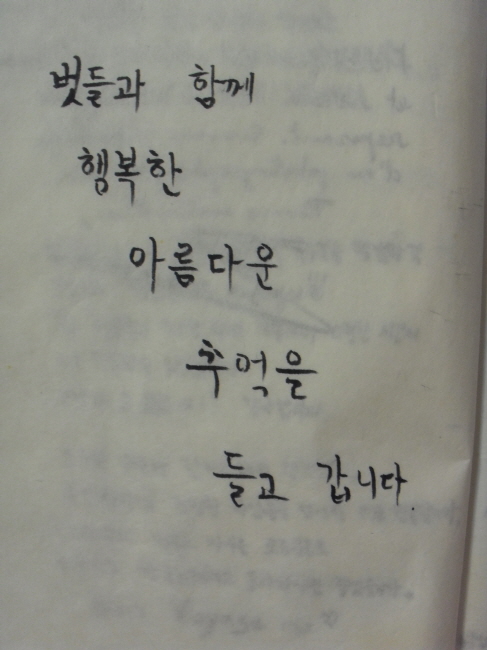 벗들과 함께
행복한
아름다운
추억을
들고 갑니다.